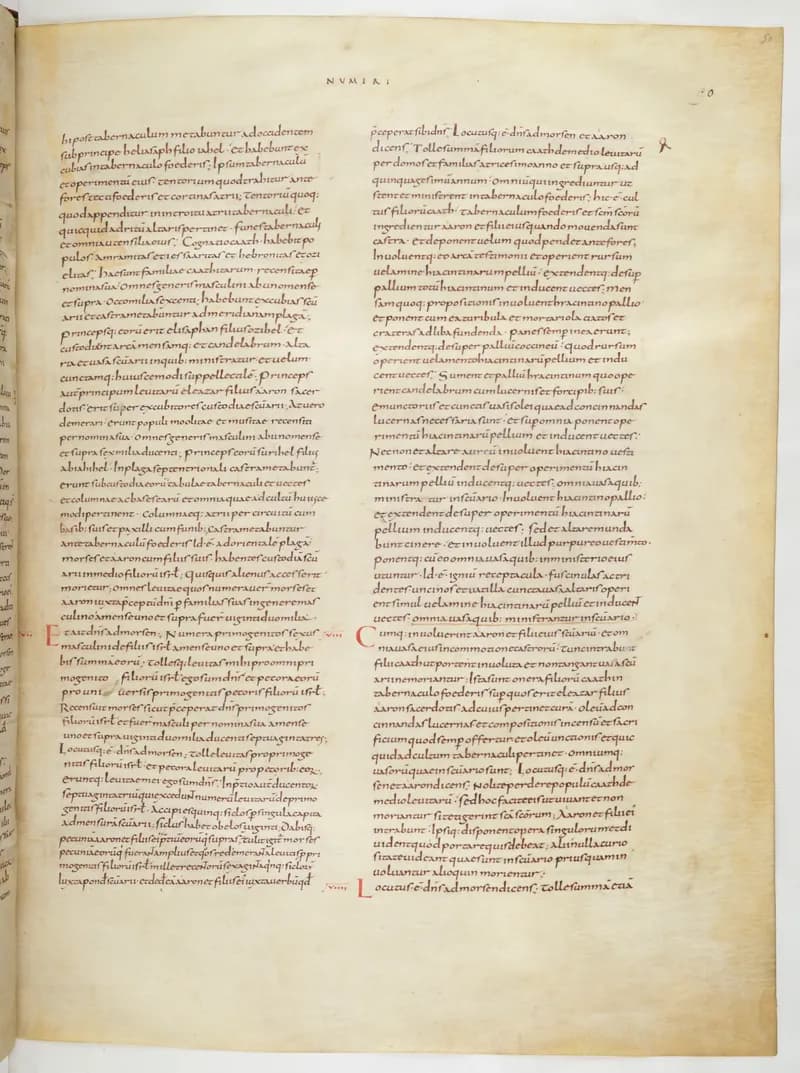 NUMERI
hi post tabernaculum metabuntur ad occidentem
sub principe heliasaph filio lahel · et habebunt ex
cubias in tabernaculo foederis; Ipsum tabernaculū
et operimentū eius · tentorium quod trahitur ante
fores tecti foederis et cortinas atrii; Tentoriū quoq:
quod appenditur in introitu atrii tabernaculi · et
quicquid ad ritū altaris pertinet · funes tabernaculi
et omnia utensilia eius; Cognatio caath · habebit po
pulos amramitas et iessaaritas et hebronitas et ozi
elitas; hae sunt familiae caathitarum · recensitae p
nomina sua · Omnes generis masculini ab uno mense
et supra · octo milia sexcenti · habebunt excubias scū
arii et castrametabuntur ad meridianam plagā;
princepsq: eorū erit elisaphan filius ozihel · et
custodient arcā mensamq: et candelabrum · alta
ria et uasa scūarii in quib: ministratur et uelum ·
cunctamq: huiuscemodi suppellectilē; Princeps
aut principum leuitarū eleazar filius aaron sacer
dotis · erit super excubitores custodiae scūarii; At uero
demerari erunt populi moolitae et musitae recensiti
per nomina sua · Omnes generis masculini ab uno mense
et supra sex milia ducenti; princeps eorū surihel filius
abiahihel · In plaga septentrionali castrametabunt;
erunt sub custodia eorū tabulae tabernaculi et uectes
et columnae ac bases earū et omnia quae ad cultū huiusce
modi pertinent · Columnaeq: atrii per circuitū cum
basib: suis et paxilli cum funib; Castrametabuntur
ante tabernaculū foederis id · ē ad orientalē plagā
moses et aaron cum filiis suis · habentes custodiā scū
arii in medio filiorū isrł; quisquis alienus accesserit
morietur; omnes leuitae quos numerauer moses et
aaron iuxta p̄ceptū dn̄i p familias suas in genere mas
culino a mense uno et supra fuer uiginti duo milia ·
Et ait dn̄s ad mosen; Numera primogenitos sexus
masculini de filiis isrł · a mense uno et supra et habe
bis summam eorū; tollesq: leuitas mihi pro omni pri
mogenito filiorū isrł · ego sum dn̄s et pecora eorū
pro uniuersis primogenitis pecoris filiorū isrł;
Recensuit moses sicut p̄ceperat dn̄s primogenitos
filiorū isrł · et fuer masculi per nomina sua a mense
uno et supra uiginti duo milia ducenti septuaginta tres;
Locutusq: ē dn̄s ad mosen; tolle leuitas pro primoge
nitis filiorū isrł · et pecora leuitarū pro pecorib: eoꝝ
eruntq: leuitae mei ego sum dn̄s; In p̄tio aut ducentoꝝ
septuaginta triū qui excedunt numerū leuitarū de primo
genitis filiorū isrł · Accipies quinq: siclos p singula capita
ad mensurā scūarii; siclus habet obolos uiginti; Dabisq:
pecuniā aaron et filiis ei p̄tiū eorū qui supra s; tulit igit moses
pecuniā eorū qui fuerant amplius et quos redemerant a leuitis p pri
mogenitis filiorū isrł · mille trecentorū sexaginta quinq: siclorū
iuxta pond scūarii et dedit eā aaron et filiis ei iuxta uerbū qd
p̄ceperat sibi dn̄s; Locutusq: ē dn̄s ad mosen et aaron
dicens; Tolle summā filiorum caath de medio leuitarū
per domos et familias a tricesimo anno et supra usq: ad
quinquagesimū annum · Omniū qui ingrediuntur ut
stent et ministrent in tabernaculo foederis; hic ē cul
tus filiorū caath · tabernaculum foederis et scm̄ scorū
ingredientur aaron et filii eius quando mouenda sunt
castra · et deponent uelum quod pendet ante fores;
Inuoluentq: eo arcā testimonii et operient rursum
uelamine hiacintinarum pelliū · extendentq: desup
pallium totū hiacintinum et inducent uectes; men
sam quoq: propositionis inuoluent hiacintino pallio ·
et ponent cum ea turibula et mortariola ciatos et
crateras ad liba fundenda · panes semp in ea erunt;
extendentq: desuper palliū coccineū · quod rursum
operient uelamento hiacintinarū pellium et indu
cent uectes; Sument et palliū hiacintinum quo ope
rient candelabrum cum lucernis et forcipib: suis ·
emunctoriis et cunctis uasis olei quae ad concinnandas
lucernas necessaria sunt · et sup omnia ponent ope
rimentū hiacintinarū pellium et inducent uectes;
Nec non et altare aureū inuoluent hiacintino uesti
mento · et extendent desuper operimentū hiacin
tinarum pellium inducentq: uectes; omnia uasa quib:
ministratur in scūario · inuoluent hiacintino pallio:
et extendent desuper operimentū hiacintinarū
pellium inducentq: uectes; sed et altare munda
bunt cinere · et inuoluent illud purpureo uestimto ·
ponentq: cū eo omnia uasa quib: in ministerio eius
utuntur · Id · ē igniū receptacula · fuscinulas ac tri
dentes uncinos et uatilla cuncta uasa altaris operi
ent simul uelamine hiacintinarū pelliū et inducent
uectes; omnia uasa quib: ministrantur in scūario ·
Cumq: inuoluerint aaron et filii eius scūariū et om
nia uasa eius in commotione castrorū · tunc intrabunt
filii caath ut portent inuoluta et non tangant uasa scū
arii ne moriantur; Ista sunt onera filiorū caath in
tabernaculo foederis sup quos erit eleazar filius
aaron sacerdotis ad cuius pertinet cura · oleū ad con
cinnandas lucernas et compositionis incensū et sacri
ficium quod semp offertur et oleū unctionis et quic
quid ad cultum tabernaculi pertinet · omniumq:
uasorū quae in scūario sunt; Locutusq: ē dn̄s ad mo
sen et aaron dicens; Nolite perdere populū caath de
medio leuitarū · sed hoc facite eis ut uiuant et non
moriantur si tetigerint sc̄a sc̄orum; Aaron et filii ei
intrabunt · Ipsiq: disponent opera singulorum et di
uident quod portare quis debeat; alii nulla curio
sitate uideant quae sunt in scūario priusquam in
uoluantur alioquin morientur;
Locutus · ē dn̄s ad mosen dicens; tolle summā etiā